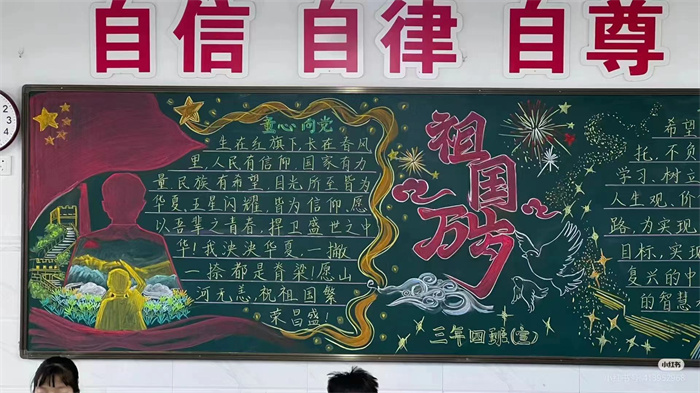 自信 自律 自尊
童心向党
生在红旗下,长在春风
里,人民有信仰,国家有力
量,民族有希望,目光所至皆为
华夏,五星闪耀,皆为信仰,愿
以吾辈之青春,捍卫盛世之中
华!我泱泱华夏,一撇
一捺都是脊梁!原山
河无恙,祝祖国繁
荣昌盛!
祖国
万岁
三年四班(宣)
希望
托,不负
学习,树立
人生观、价
路,为实现
目标,实现
复兴的
的智慧
2
3
4
小红书